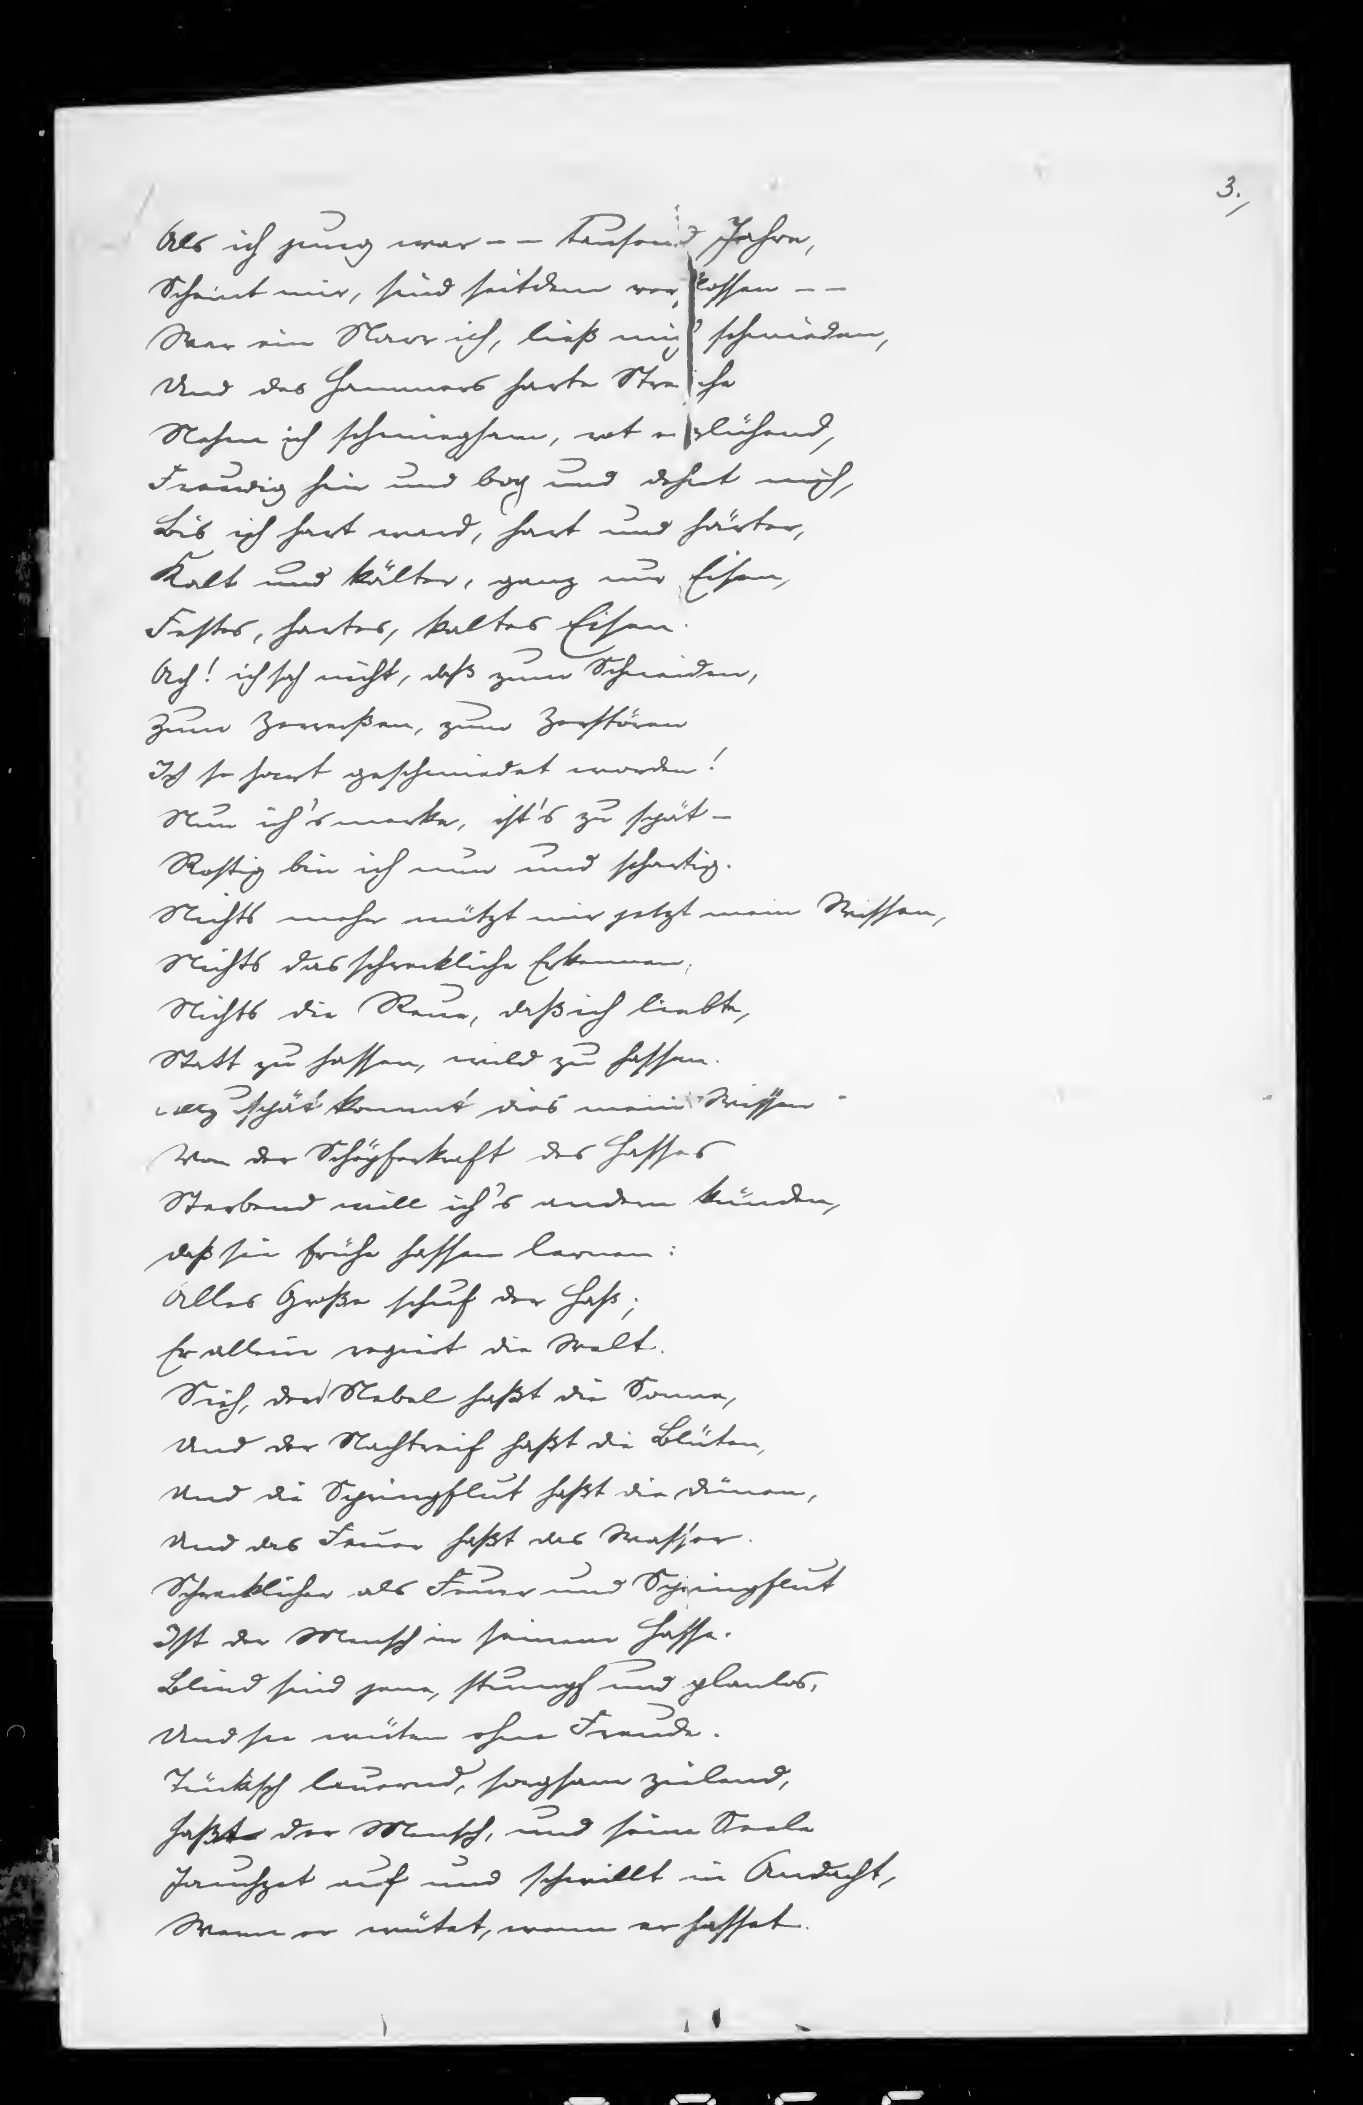 3.,
Als ich jung war -- tausend Jahre,
Scheint mir, sind seitdem verflossen --
War ein Narr ich, ließ mich schmieden,
Und des Hammers harte Streiche
Nahm ich schmiegsam, rot erglühend,
Freudig hin und bog und dehnt mich,
Bis ich hart ward, hart und härter,
Kalt und kälter, ganz nur Eisen,
Festes, hartes, kaltes Eisen.
Ach! ich sah nicht, daß zum Schneiden,
Zum Zerreißen, zum Zerstören
Ich so hart geschmiedet worden!
Nun ich's merke, ist's zu spät –
Rostig bin ich nun und schartig.
Nichts mehr nützt mir jetzt mein Wissen,
Nichts das schreckliche Erkennen,
Nichts die Reue, daß ich liebte,
Statt zu hassen, wild zu hassen.
spät kommt dies mein Wissen
Von der Schöpferkraft des Hasses
Sterbend will ich's andern künden,
daß sie frühe hassen lernen:
Alles Große schuf der Haß;
Er allein regiert die Welt.
Sieh, der Nebel haßt die Sonne,
Und der Nachtreif haßt die Blüten,
Und die Springflut haßt die Dünen,
Und das Feuer haßt das Wasser.
Schrecklicher als Feuer und Springflut
Ist der Mensch in seinem Hasse.
Blind sind jene, stumpf und planlos,
Und sie wüten ohne Freude.
Tückisch lauernd, sorgsam zielend,
Haßt der Mensch, und seine Seele
Jauchzet auf und schwillt in Andacht,
Wenn er wütet, wenn er hasset.